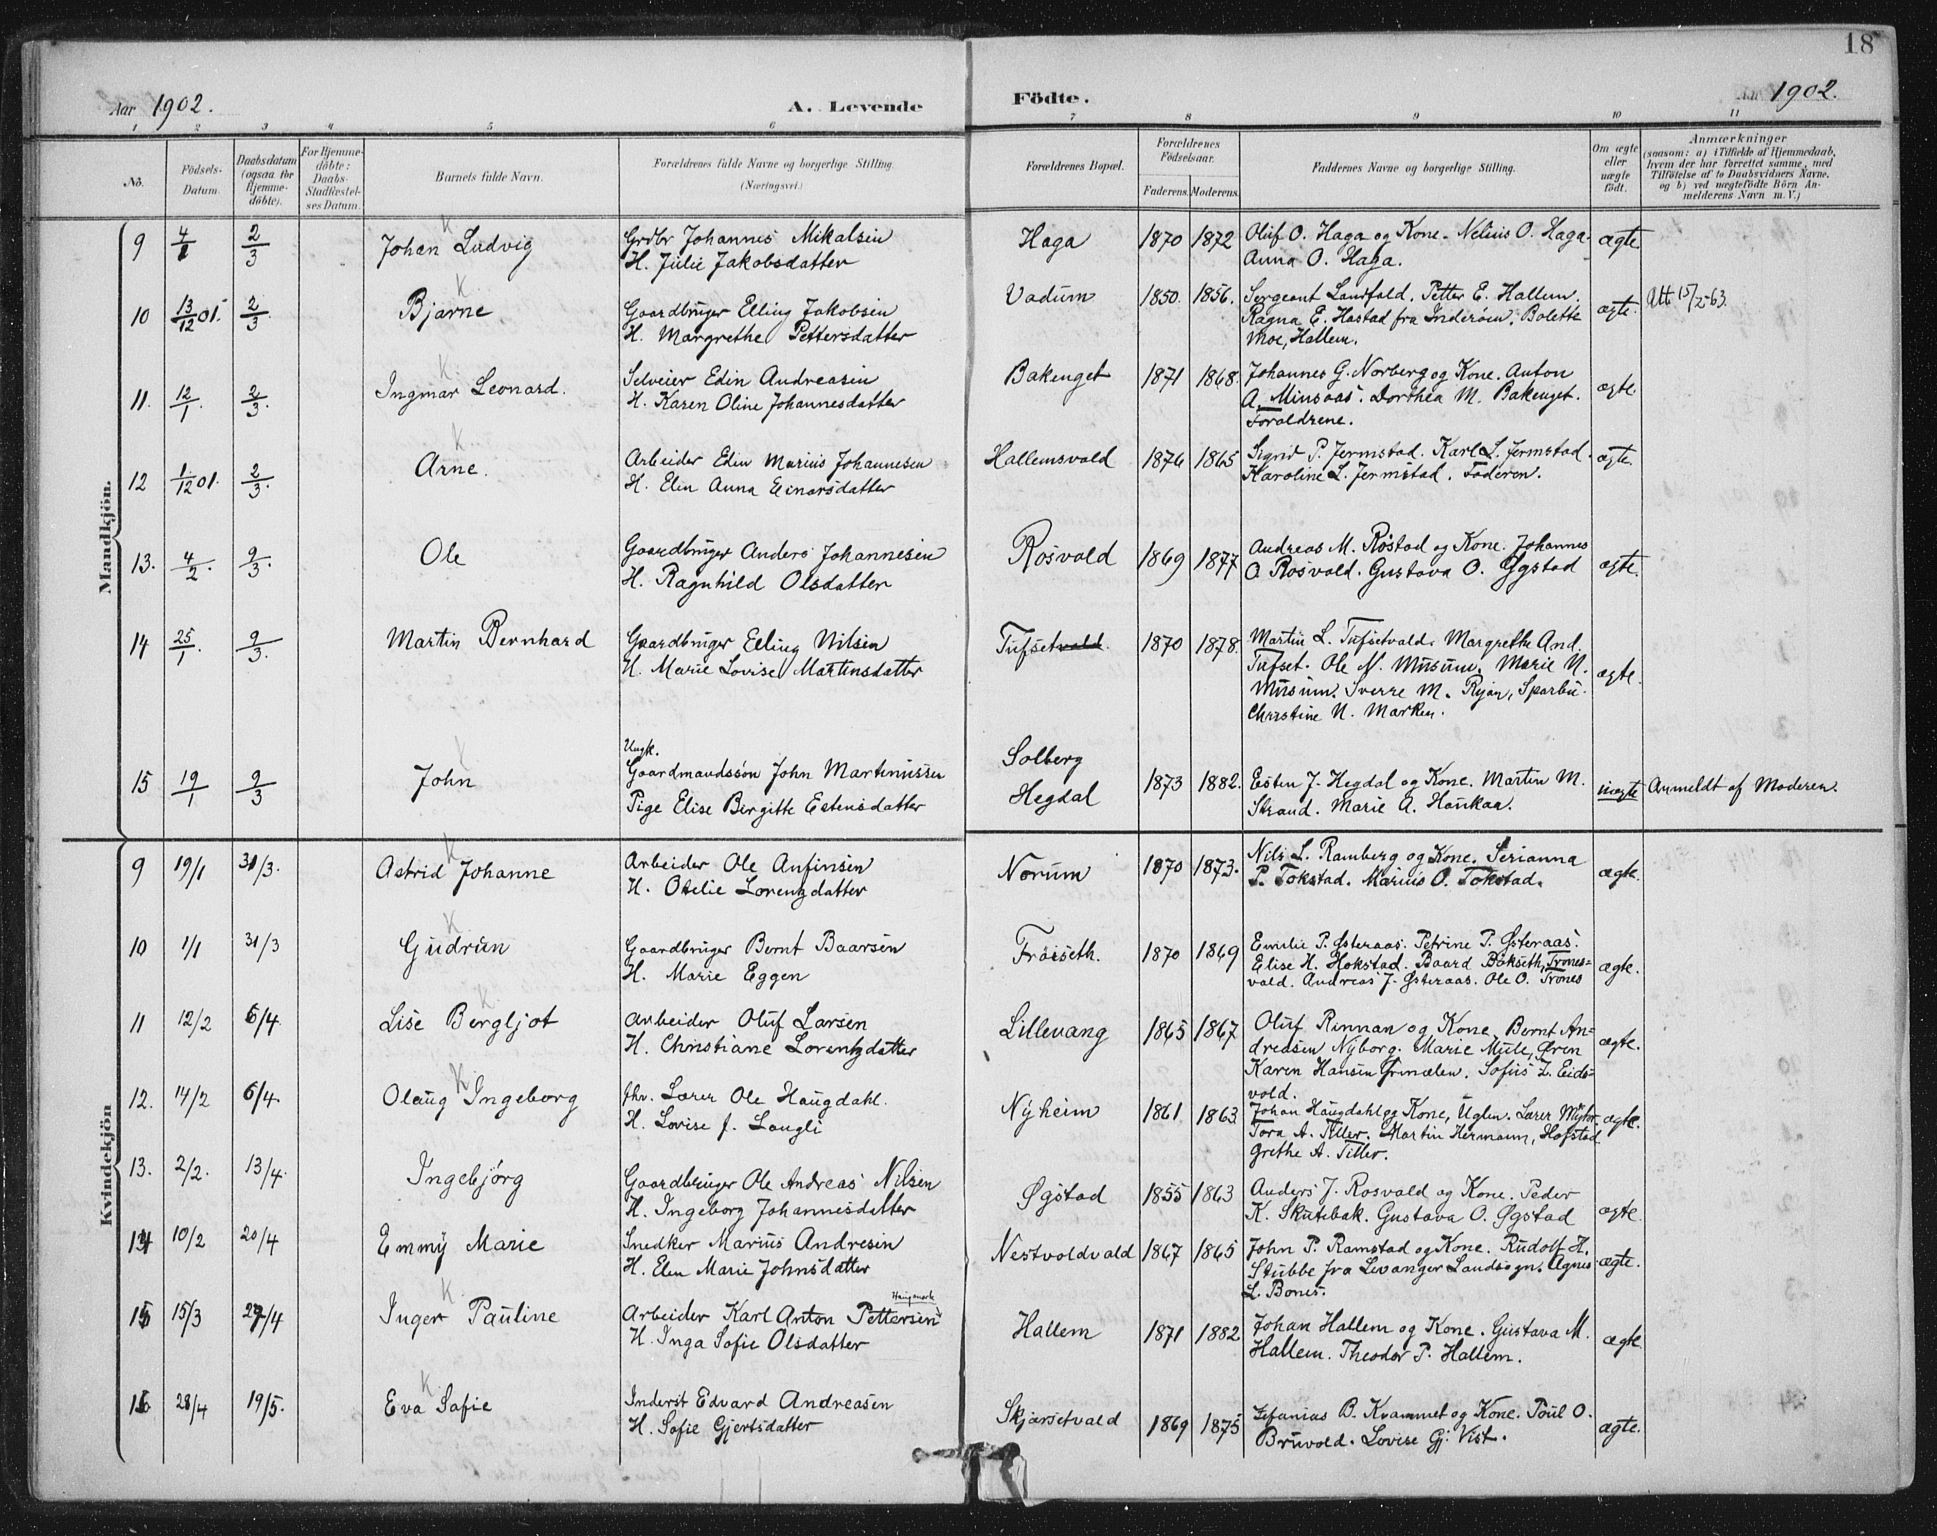 18
Aar 1902. A. Levende Födte. Aar 1902.
1 2 3 4 5 6 7 8 9 10 11
No.
Födsels-
Datum.
Daabsdatum
(ogsaa for
Hjemme-
döbte).
For Hjemme-
döbte:
Daabs-
Stadfæstel-
ses Datum.
Barnets fulde Navn.
Forældrenes fulde Navne og borgerlige Stilling.
(Næringsvei.)
Forældrenes Bopæl.
Forældrenes
Födselsaar.
Faderens. Moderens.
Faddernes Navne og borgerlige Stilling.
Om ægte
eller
uægte
født.
Anmærkninger
(saasom: a) i Tilfælde af Hjemmedaab,
hvem der har forrettet samme, med
Tilføielse af to Daabsvidners Navne.
og b) ved uægtefödte Börn An-
melderens Navn m. V.)
Mandkjön.
9 4/1 2/3 Johan Ludvig Grdbr Johannes Mikalsen Haga 1870 1872 Oluf O. Haga og Kone. Nelius O. Haga. ægte
H. Julie Jakobsdatter Anna O. Haga.
10 13/12 01. 2/3. Bjarne Gaardbruger Elling Jakobsen Vadum 1850. 1856. Sergeant Landfald. Petter E. Hallem. ægte.
H. Margrethe Pettersdatter Ragna E. Hastad fra Inderøen. Bolette
Moe, Hallem.
11. 12/1. 2/3. Ingmar Leonard. Selveier Edin Andreasen Bakenget 1871 1868. Johannes G. Norberg og Kone. Anton ægte.
H. Karen Oline Johannesdatter A. Minsaas. Dorthea M. Bakenget.
Forældrene.
12 1/12 01. 2/3. Arne. Arbeider Edin Marius Johannesen Hallemsvald 1876 1865 Sigrid P. Jermstad. Karl L. Jermstad. ægte.
H. Elen Anna Einarsdatter Karoline L. Jermstad. Faderen.
13. 4/2. 9/3. Ole Gaardbruger Anders Johannesen Rosvold 1869 1877 Andreas M. Røstad og Kone. Johannes ægte.
H. Ragnhild Olsdatter O. Rosvold. Gustava O. Øgstad
14 25/1. 9/3. Martin Bernhard Gaardbruger Elling Nilsen Tufsetvald. 1870 1878. Martin L. Tufsetvald. Margrethe And. ægte.
H. Marie Lovise Martinsdatter Tufset. Ole N. Musum. Marie N.
Musum. Sverre M. Ryan, Sparbu.
Christine N. Marken.
15 19/1 9/3 John Ungk.
Gaardmandssøn John Martinussen Solberg 1873 1882. Esten J. Hegdal og Kone. Martin M. uægte Anmeldt af Moderen.
Pige Elise Birgitte Estensdatter Hegdal Strand. Marie A. Haukaa.
Kvindekjön
9 19/1 31/3. Astrid Johanne Arbeider Ole Anfinsen Norum 1870 1873. Nils L. Ramberg og Kone. Serianna ægte.
H. Otelie Lorentzdatter P. Tokstad. Marius O. Tokstad.
10 1/1 31/3 Gudrun Gaardbruger Bernt Baarsen Frøiseth. 1870 1869 Emilie P. Østeraas. Petrine P. Østeraas. ægte.
H. Marie Eggen Elise H. Hokstad. Baard Bakseth, Trones-
vald. Andreas J. Østeraas. Ole O. Trones
11 12/2 6/4. Lise Bergljot Arbeider Oluf Larsen Lillevang 1865 1867 Oluf Rinnan og Kone. Bernt An- ægte.
H. Christiane Lorentzdatter dreasen Nyborg. Marie Mule, Øren
Karen Hansen Grinælen. Sofus Z. Eids-
vold.
12. 14/2 6/4. Olaug Ingeborg fhv. Lærer Ole Haugdahl. Nyheim 1861 1863 Johan Haugdahl og Kone, Uglen. Lærer ægte.
H. Lovise J. Langli Tora A. Tiller. Martin Hermann, Hofstad
Grethe A. Tiller.
13. 2/2. 13/4. Ingebjørg Gaardbruger Ole Andreas Nilsen Øgstad 1855 1863 Anders J. Rosvald og Kone. Peder ægte.
H. Ingeborg Johannesdatter K. Skutebak. Gustava O. Øgstad
14 10/2 20/4 Emmy Marie Snedker Marius Andresen Nestvoldvald 1867 1865 John P. Ramstad og Kone. Rudolf H. ægte.
H. Elen Marie Johnsdatter Stubbe fra Levanger Landsogn. Agnes
L. Bones.
15 15/3 27/4 Inger Pauline Arbeider Karl Anton Pettersen Hallem 1871 1882. Johan Hallem og Kone. Gustava M. ægte
H. Inga Sofie Olsdatter Hallem. Theodor P. Hallem.
28/4 19/5. Eva Sofie Inderst Edvard Andreasen Skjørsetvald 1869 1875 Zefanias B. Kvammet og Kone. Poul O. ægte.
H. Sofie Gjertsdatter Bruvold. Lovise Gj. Vist.